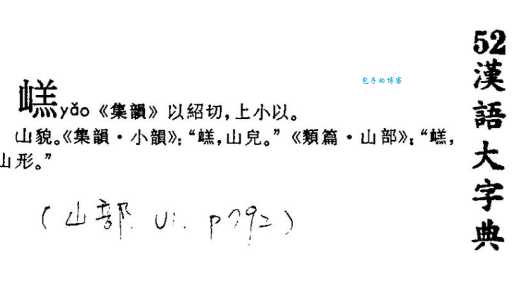 52漢語大字典
包子的博客
嵹yǎo《集韻》以紹切,上小以。
山貌。《集韻·小韻》:“嵹,山皃。”《類篇·山部》:“嵹,
山形。”
(山部. U:. p792)